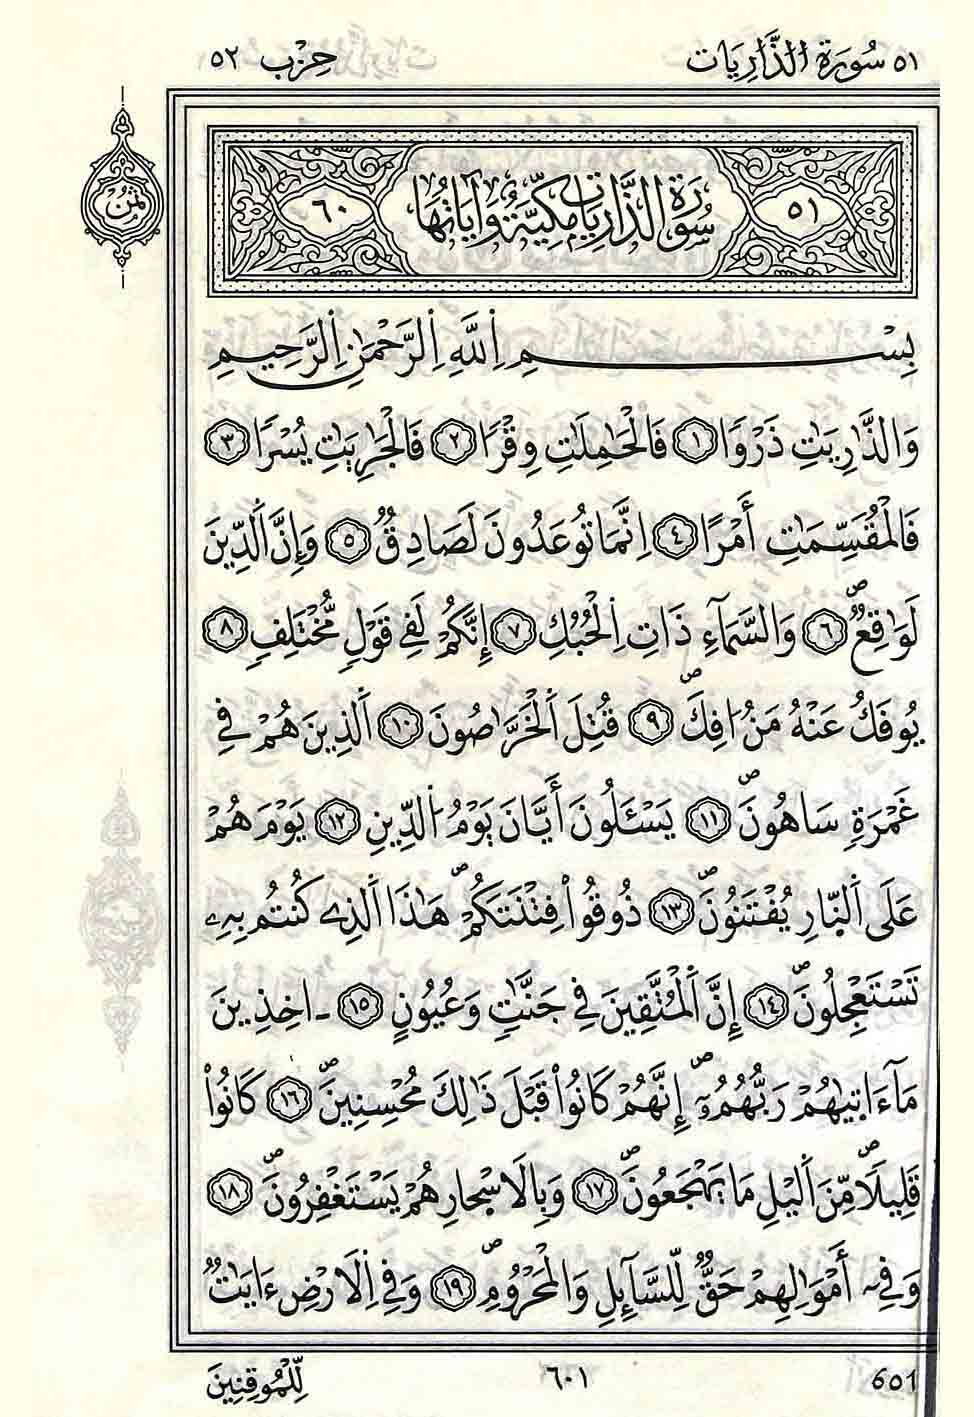 ٥١ سُورَةُ الذَّارِيَات حِزْب ٥٢
ثُمُن
٥١ سُورَةُ الذَّارِيَاتِ مَكِّيَّةٌ وَآيَاتُهَا ٦٠
بِسْمِ اِللَّهِ اِلرَّحْمَٰنِ اِلرَّحِيمِ
وَالذَّٰرِيَٰتِ ذَرْوًا ١ فَالْحَٰمِلَٰتِ وِقْرًا ٢ فَالْجَٰرِيَٰتِ يُسْرًا ٣
فَالْمُقَسِّمَٰتِ أَمْرًا ٤ اِنَّمَا تُوعَدُونَ لَصَادِقٌ ٥ وَإِنَّ اَلدِّينَ
لَوَٰقِعٌ ٦ وَالسَّمَآءِ ذَاتِ اِلْحُبُكِ ٧ إِنَّكُمْ لَفِے قَوْلٍ مُّخْتَلِفٍ ٨
يُوفَكُ عَنْهُ مَنُ ا۟فِكَ ٩ قُتِلَ اَلْخَرَّٰصُونَ ١٠ اَلذِينَ هُمْ فِے
غَمْرَةٍ سَاهُونَ ١١ يَسْـَٔلُونَ أَيَّانَ يَوْمُ اُلدِّينِ ١٢ يَوْمَ هُمْ
عَلَى اَلنَّارِ يُفْتَنُونَ ١٣ ذُوقُواْ فِتْنَتَكُمْ هَٰذَا اَلذِے كُنتُم بِهِۦ
تَسْتَعْجِلُونَ ١٤ إِنَّ اَلْمُتَّقِينَ فِے جَنَّٰتٍ وَعُيُونٍ ١٥ ـ اخِذِينَ
مَآ ءَاتٜيٰهُمْ رَبُّهُمُۥٓ إِنَّهُمْ كَانُواْ قَبْلَ ذَٰلِكَ مُحْسِنِينَ ١٦ كَانُواْ
قَلِيلًا مِّنَ اَليْلِ مَا يَهْجَعُونَ ١٧ وَبِالَاسْحٜارِ هُمْ يَسْتَغْفِرُونَ ١٨
وَفِےٓ أَمْوَٰلِهِمْ حَقٌّ لِّلسَّآئِلِ وَالْمَحْرُومِ ١٩ وَفِے اِلَارْضِ ءَايَٰتٌ
لِّلْمُوقِنِينَ
٦٠١
651